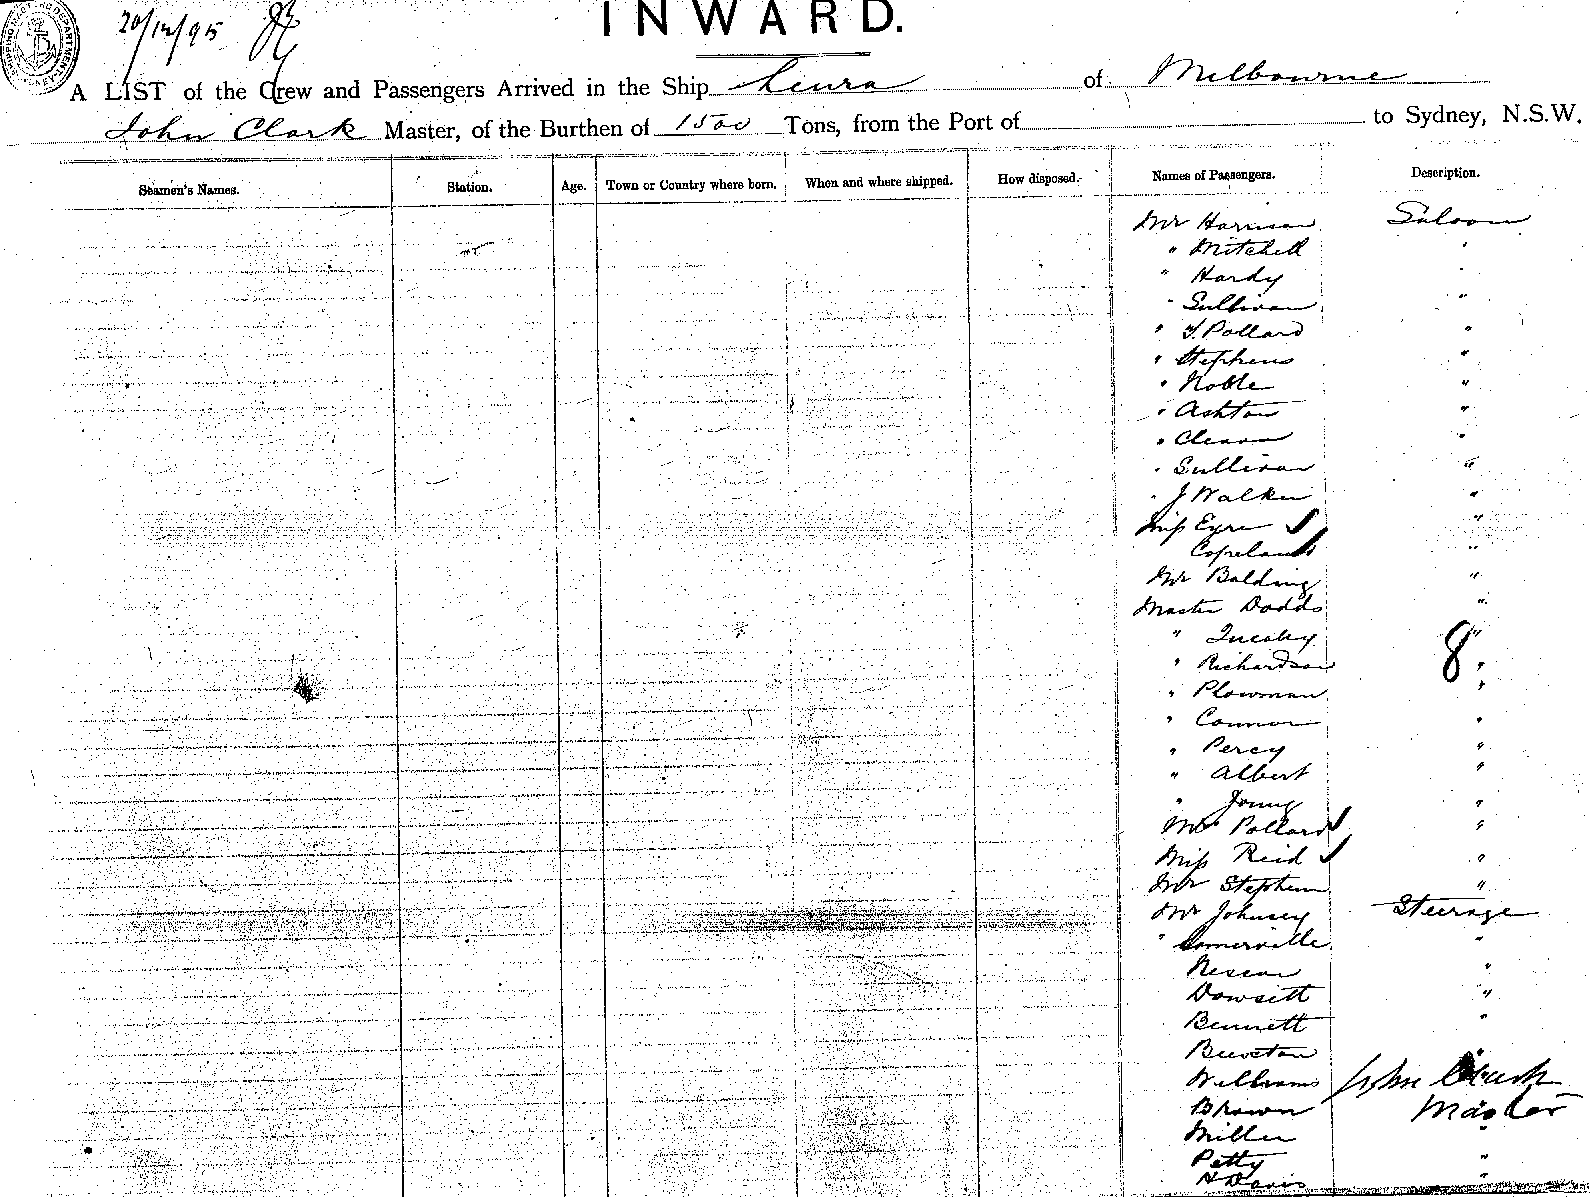 20/12/95
INWARD.
A LIST of the Crew and Passengers Arrived in the Ship Leura of Melbourne
John Clark Master, of the Burthen of 1500 Tons, from the Port of to Sydney, N.S.W.
Seamen's Names. Station. Age. Town or Country where born. When and where shipped. How disposed. Names of Passengers. Description.
Mr Harrison Saloon
" Mitchell "
" Hardy "
" Sullivan "
" T. Pollard "
" Stephens "
" Noble "
" Ashton "
" "
" Sullivan "
" J Walker "
Miss Eyre "
Copeland "
Mr Balding "
Master Dodds "
" "
8
" Richardson "
" Plowman "
" Connor "
" Percy "
" Albert "
" "
Mrs Pollard "
Miss Reid "
Mr Stephens "
Mr Johnsey Steerage
" Somerville "
"
Dowsett "
Bennett "
Beeston
Williams John Clark
Brown Master
Miller "
Petty "
H Davis "